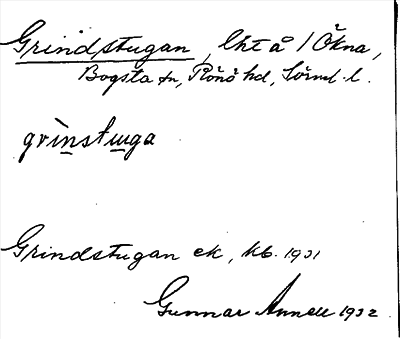 Grindstugan, lht å / Ökna,
Bogsta sn, Rönö hd, Sörml. l.
grìnstuga
Grindstugan ek, kb. 1931
Gunnar Annell 1932